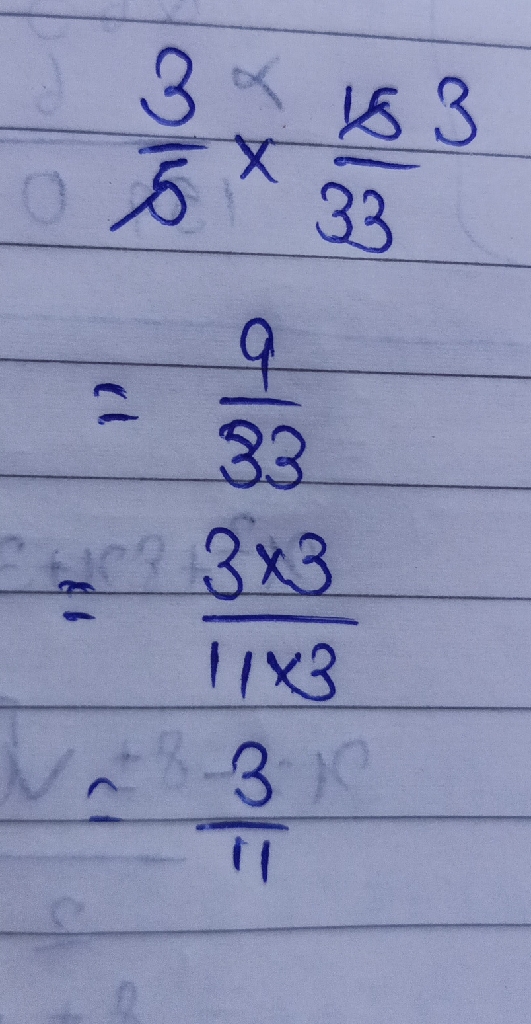 3/5 × 15/33 3
= 9/33
= 3×3/11×3
= 3/11